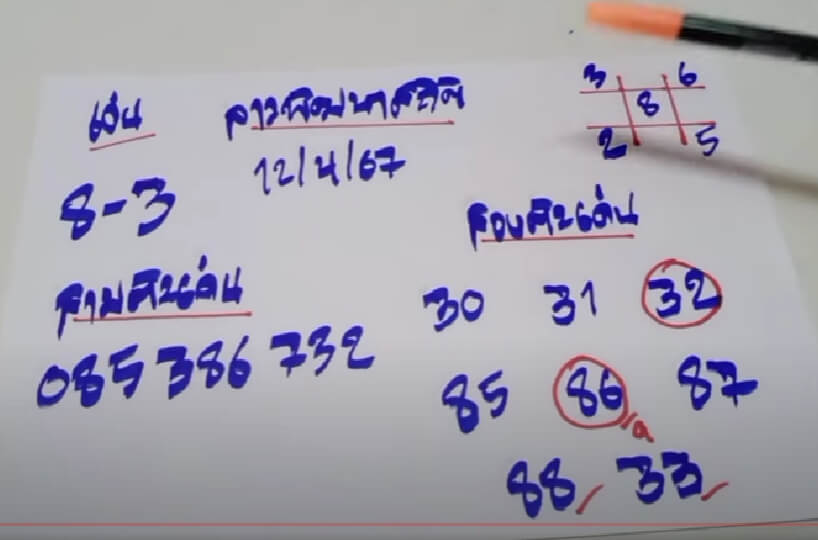 เด่น
ลาวพัฒนาสถิติ
12/4/67
3 6
8
2 5
8-3
สองตัวเด่น
สามตัวเด่น
30 31 32
085 386 732
85 86 87
88 33